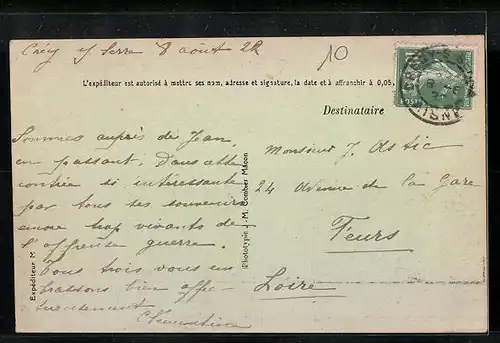 Crécy s/ Serre 8 août 22
10
L'expéditeur est autorisé à mettre ses nom, adresse et signature, la date et à affranchir à 0,05,
Destinataire
Sommes auprès de Jean,
en passant. Dans cette
contrée si intéressante
par tous ses souvenirs
encore trop vivants de
l'affreuse guerre.
Tous trois vous em
brassons bien affec
tueusement
Monsieur J. Astic
24 Avenue de la Gare
Feurs
Loire
Expéditeur M
Phototypie J.-M. Combier Mâcon
AISNE